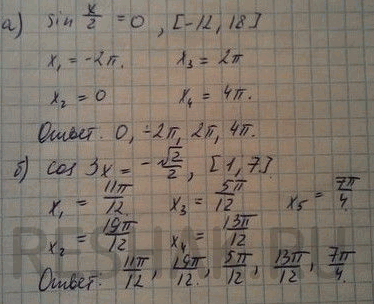 а) sin x/2 = 0 , [-12, 18]
x₁ = -2π. x₃ = 2π
x₂ = 0 x₄ = 4π.
Ответ. 0, -2π, 2π, 4π.
б) cos 3x = -√2/2 , [1, 7]
x₁ = 11π/12 x₃ = 5π/12 x₅ = 7π/4.
x₂ = 19π/12 x₄ = 13π/12
Ответ. 11π/12, 19π/12, 5π/12, 13π/12, 7π/4.